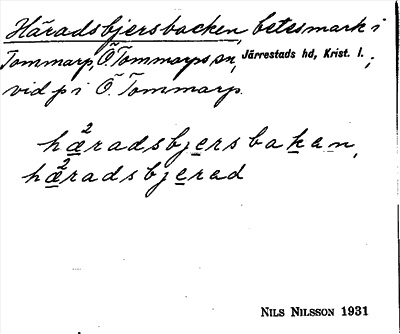 Häradsbjersbacken, betesmark i
Tommarp, Ö. Tommarps sn, Järrestads hd, Krist. l.,
vid p i Ö. Tommarp.
hä²radsbjersbakan,
hä²radsbjerad
NILS NILSSON 1931